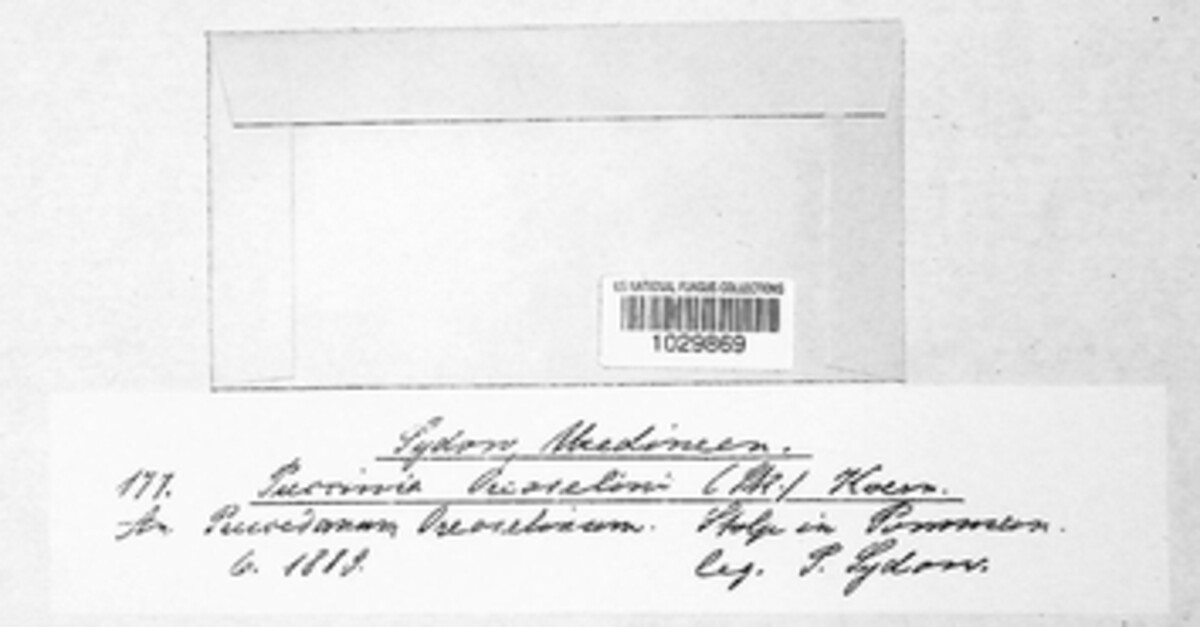 US NATIONAL FUNGUS COLLECTIONS
1029869
Sydow, Uredineen.
177. Puccinia Oreoselini (Str.) Koern.
An Peucedanum Oreoselinum. Stolp in Pommern.
6. 1889. leg. P. Sydow.